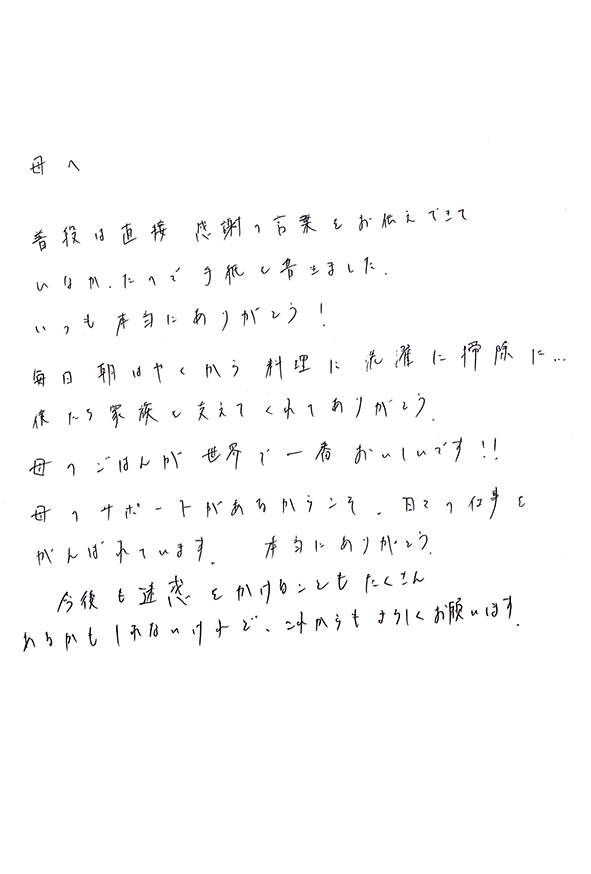 母へ
普段は直接 感謝の言葉をお伝えできて
いなかったので手紙を書きました.
いつも 本当にありがとう!
毎日 朝はやくから 料理に 洗濯に 掃除に…
僕たち家族を支えてくれてありがとう.
母のごはんが世界で一番おいしいです!!
母のサポートがあるからこそ、日々の仕事を
がんばれています. 本当にありがとう.
今後も迷惑をかけることもたくさん
あるかもしれないけれど、これからもよろしくお願いします.